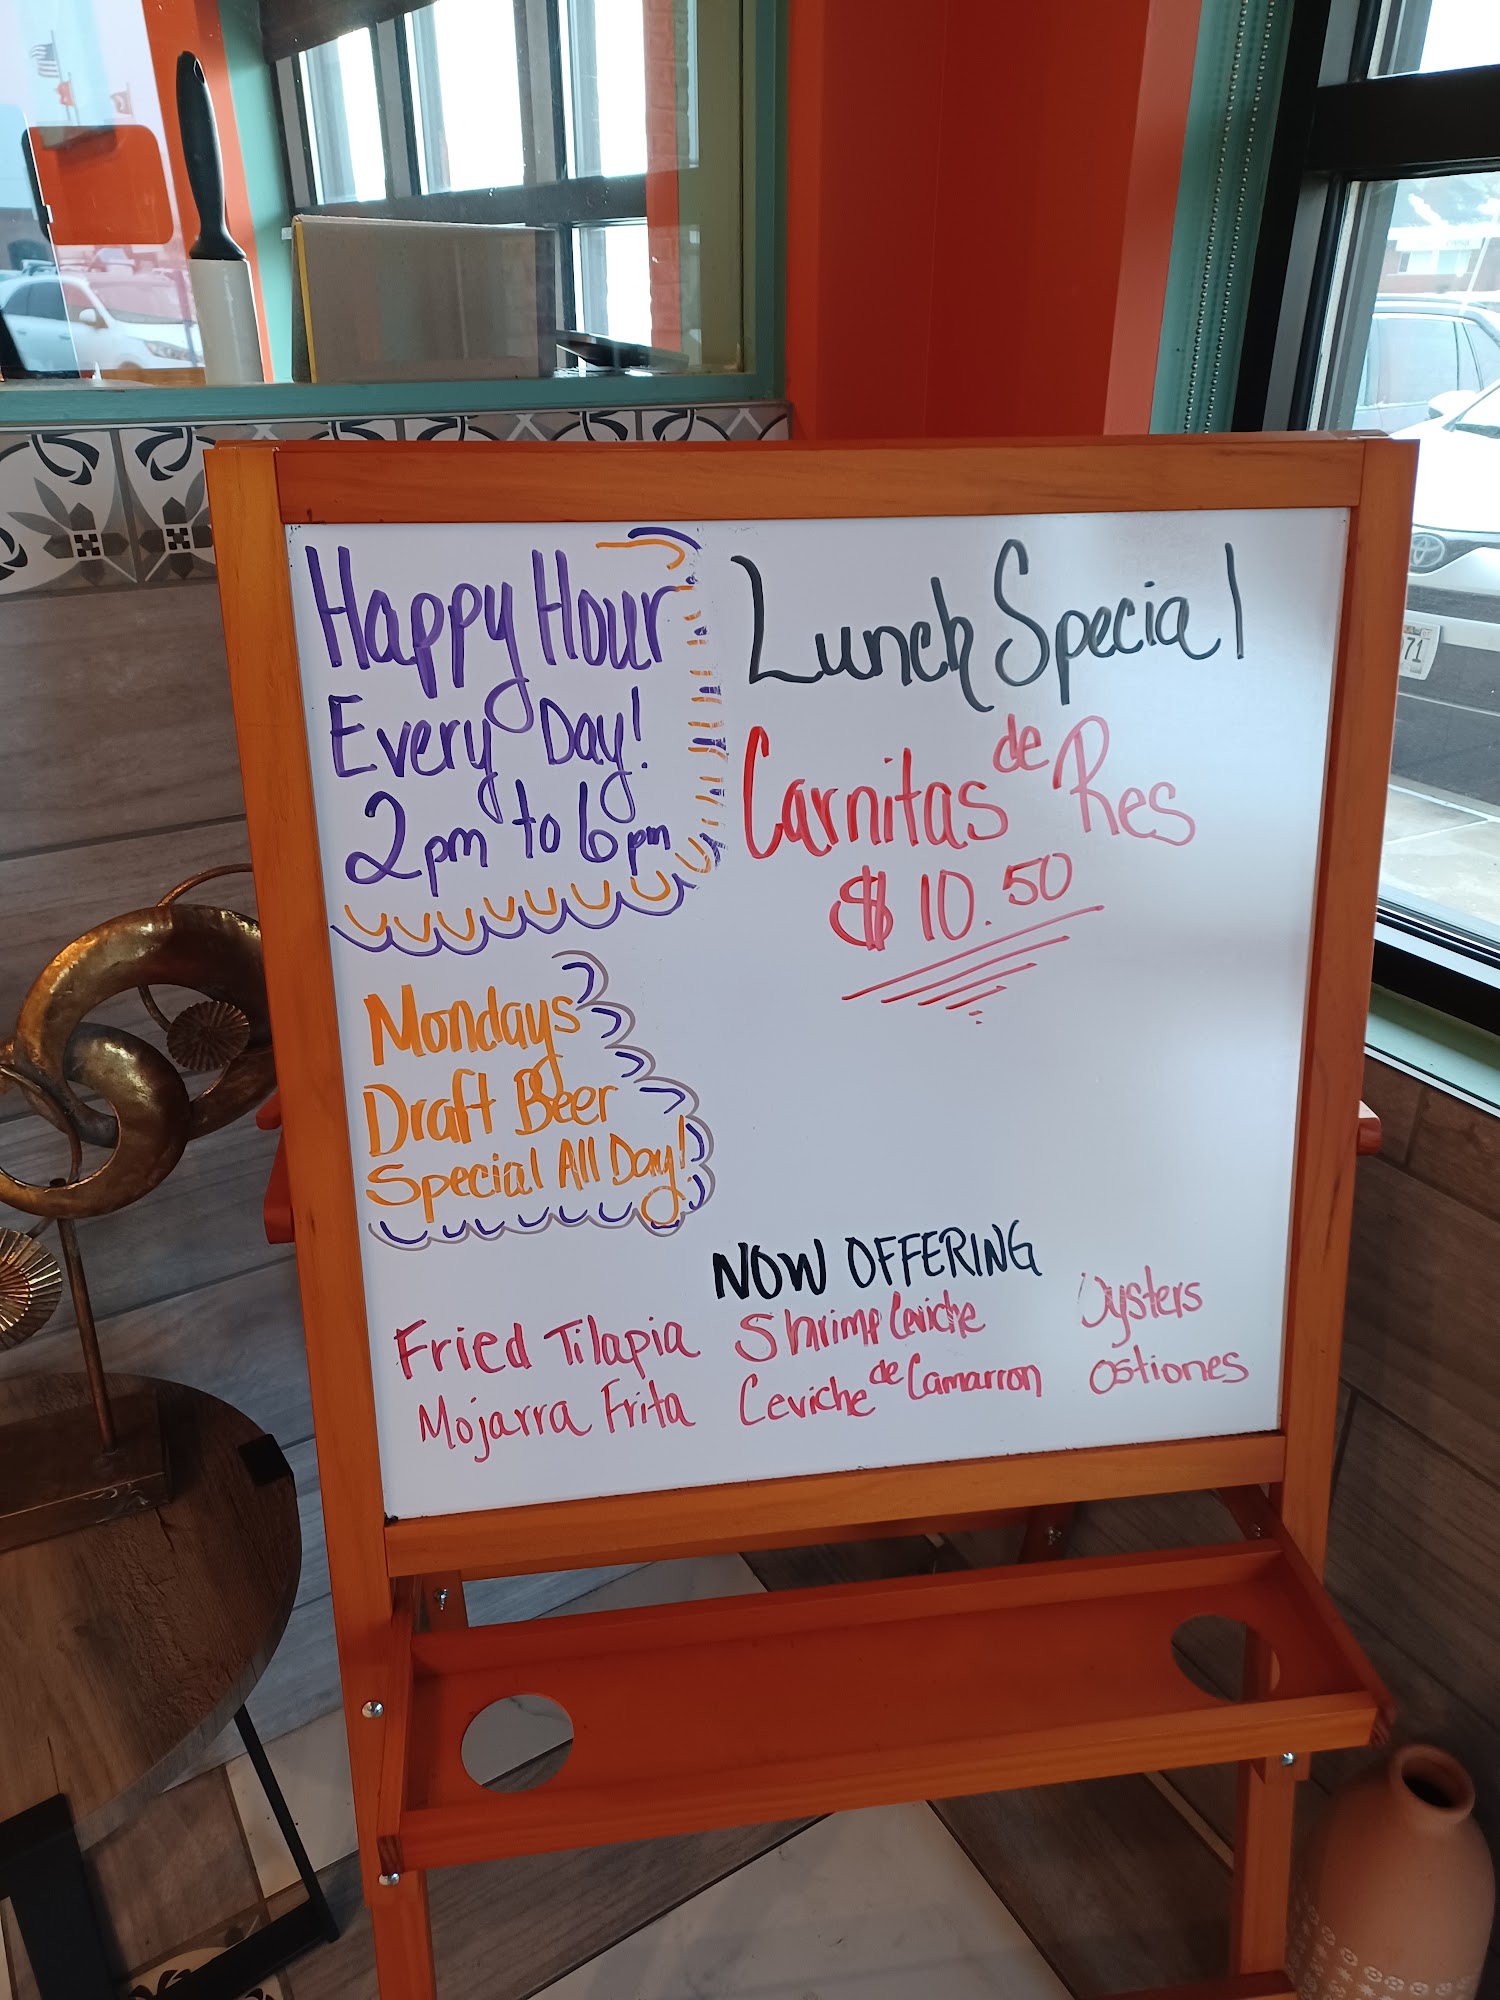 Happy Hour
Every Day!
2pm to 6pm
Mondays
Draft Beer
Special All Day!
Lunch Special
Carnitas de Res
$10.50
NOW OFFERING
Fried Tilapia
Mojarra Frita
Shrimp Ceviche
Ceviche de Camarron
Oysters
Ostiones
71